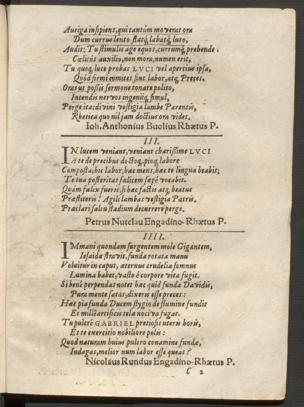 Auriga insipiens, qui tantùm moverat ora
Dum currus lento statq́; labatq́; luto,
Audit: Tu stimulis age equos, currumq́; prehende:
Cælitis auxilio, non mora, numen erit,
Tu quoq́; luce probas LVCI vel apertius ipsa,
Quòd firmi enmites sint labor, atq́; Preces.
Oras ut possis sermone tonare polito,
Intendis nervos ingeniiq́; simul,
Perge ita: divini vestigia lambe Parentis,
Rhetica quo nil jam doctius ora vides.
Ioh. Anthonius Buolius Rhætus P.
III.
IN lucem veniant, veniant charissime LVCI
A te de precibus doctoq́; pioq́; labore
Composta; hoc labor, hæc mens, hæc te lingua beabit;
Te tua posteritas falicem sæpè vocabit.
Quàm salvu fueris, si hæc factis atq́; beatus
Præstiteris! Agili lambas vestigia Patris,
Præclari salvu stadium decurrere perge.
Petrus Nutclau Engadino-Rhætus P.
IIII.
IMmani quondam surgentem mole Gigantem,
Iesaida stravit, funda rotata manu
Volvitur in caput, æternæ crudelia somnus
Lumina habet, vasto è corpore vita fugit.
Si benè perpendas notet hæc quid funda Davidis,
Pura mente satis, dixeris esse preces:
Hæc pia funda Ducem stygio de flumine fundit
Et militartificis tela nociva fugat.
Tu pulcrè GABRIEL pretiosis uteris horis,
Et te exercitio nobiliore polis:
Quod naturum huius pulcro conamine fundæ,
Indagas, melior num labor esse queat?
Nicolaus Rundus Engadino-Rhætus P.
C 2